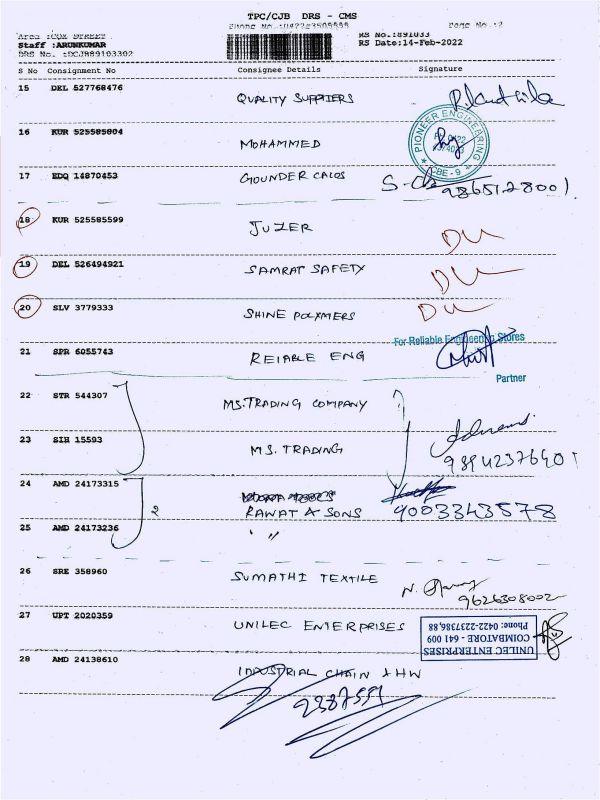 TPC/CJB DRS - CMS
Area :COX STREET
Staff :ARUNKUMAR
RS No.:891033
DRS No. :DCJB89103302
RS Date:14-Feb-2022
S No Consignment No Consignee Details Signature
15 DEL 527768476 QUALITY SUPPLIERS
16 KUR 525585804 MOHAMMED
PIONEER ENGINEERING
CBE - 9
17 EDQ 14870453 GOUNDER CALOS 9865128001
18 KUR 525585599 JUZER DU
19 DEL 526494921 SAMRAT SAFETY DU
20 SLV 3779333 SHINE POLYMERS DU
For Reliable Engineering Stores
21 SPR 6055743 RELABLE ENG
Partner
22 STR 544307 MS.TRADING COMPANY
23 SIH 15593 MS. TRADING
9894237640
24 AMD 24173315
RAWAT & SONS 9003343578
2
25 AMD 24173236 " "
26 SRE 358960 SUMATHI TEXTILE
9626308002
27 UPT 2020359 UNILEC ENTERPRISES
UNILEC ENTERPRISES
COIMBATORE - 641 009
Phone: 0422-2237386,88
28 AMD 24138610 INDUSTRIAL CHAIN & HW
2387551